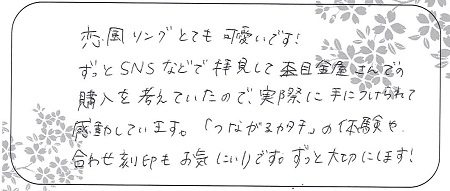 恋風リングとても可愛いです!
ずっとSNSなどで拝見して杢目金屋さんでの
購入を考えていたので、実際に手につけられて
感動しています。「つながるカタチ」の体験や
合わせ刻印もお気に入りです。ずっと大切にします!